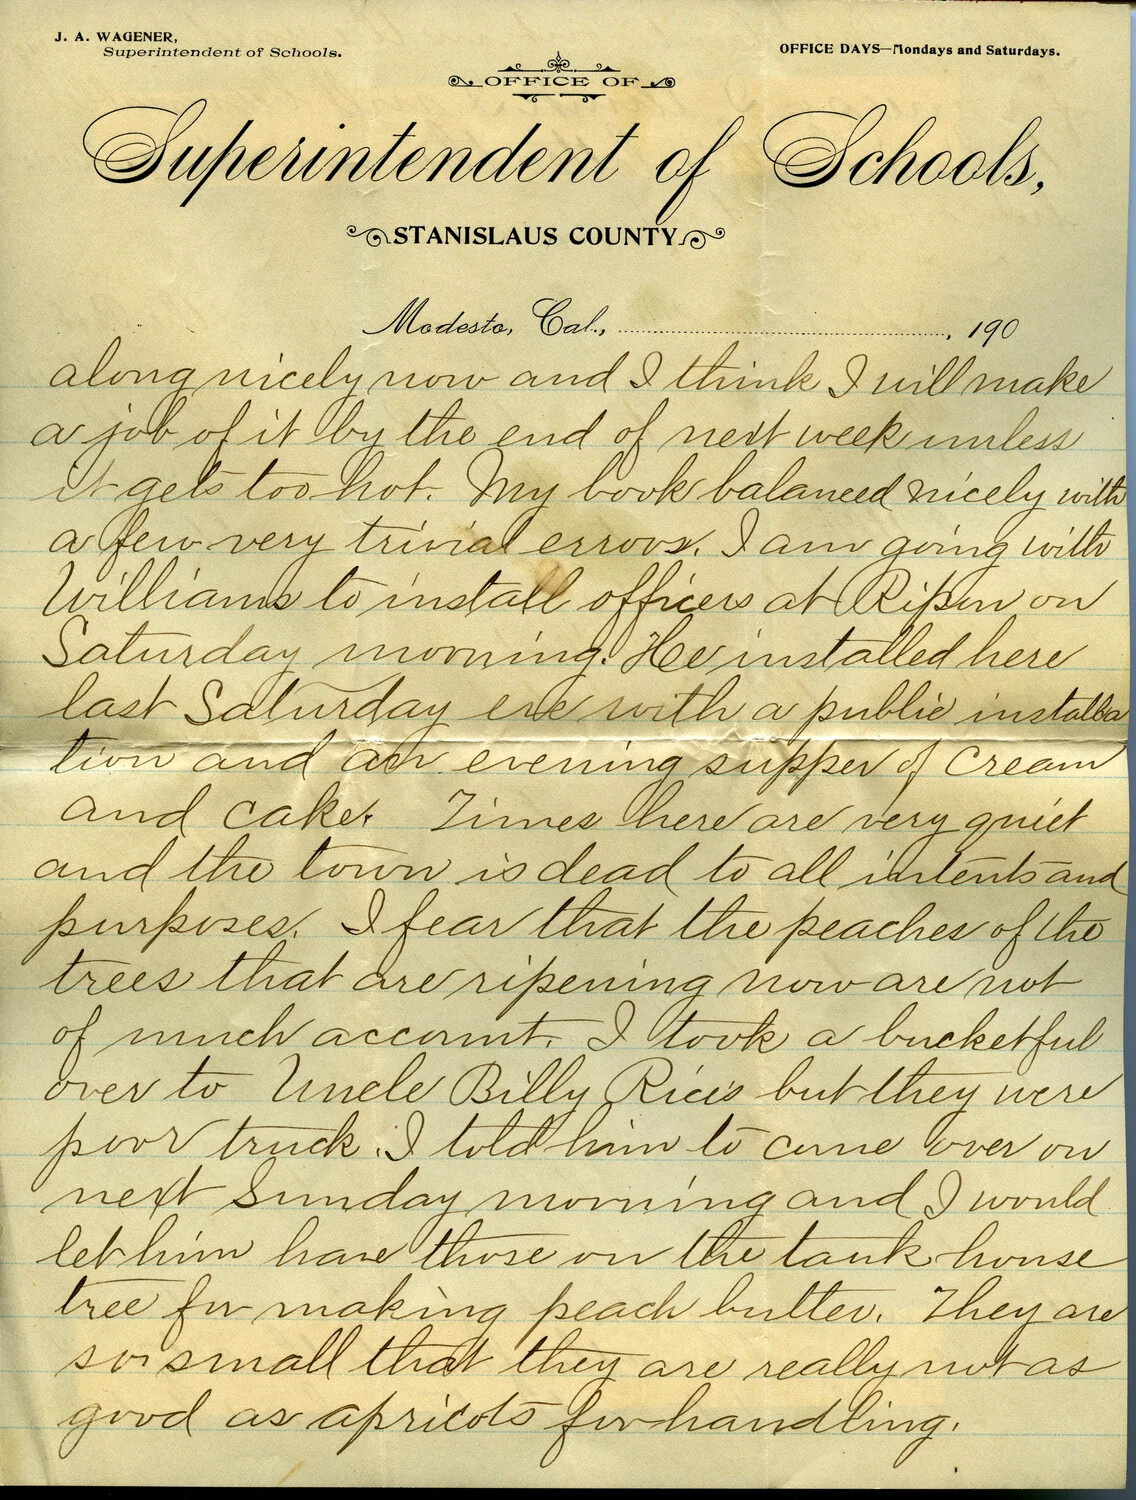 J. A. WAGENER,
Superintendent of Schools.
OFFICE DAYS—Mondays and Saturdays.
OFFICE OF
Superintendent of Schools,
STANISLAUS COUNTY
Modesto, Cal., ........................, 190
along nicely now and I think I will make
a job of it by the end of next week unless
it gets too hot. My book balanced nicely with
a few very trivial errors. I am going with
Williams to install officers at Ripon on
Saturday morning. He installed here
last Saturday eve with a public installa
tion and an evening supper of cream
and cake. Times here are very quiet
and the town is dead to all intents and
purposes. I fear that the peaches of the
trees that are ripening now are not
of much account. I took a bucketful
over to Uncle Billy Rice's but they were
poor truck. I told him to come over on
next Sunday morning and I would
let him have those on the tank-house
tree for making peach butter. They are
so small that they are really not as
good as apricots for handling.